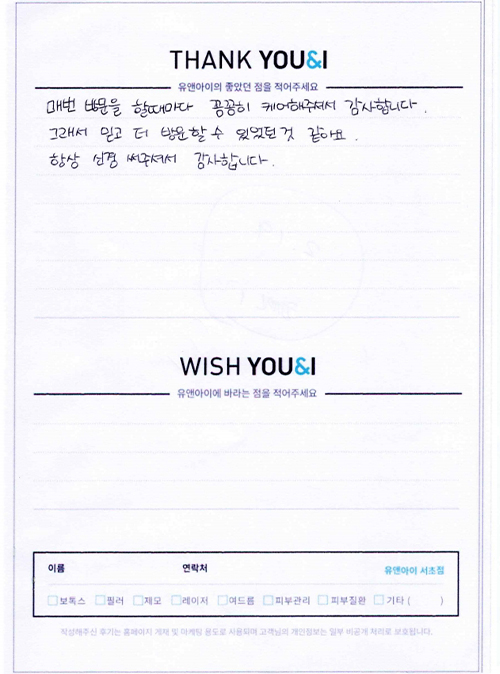 THANK YOU&I
유앤아이의 좋았던 점을 적어주세요
매번 방문을 할때마다 꼼꼼히 케어해주셔서 감사합니다.
그래서 믿고 더 방문할 수 있었던 것 같아요.
항상 신경 써주셔서 감사합니다.
WISH YOU&I
유앤아이에 바라는 점을 적어주세요
이름 연락처 유앤아이 서초점
보톡스 필러 제모 레이저 여드름 피부관리 피부질환 기타 ( )
작성해주신 후기는 홈페이지 게재 및 마케팅 용도로 사용되며 고객님의 개인정보는 일부 비공개 처리로 보호됩니다.